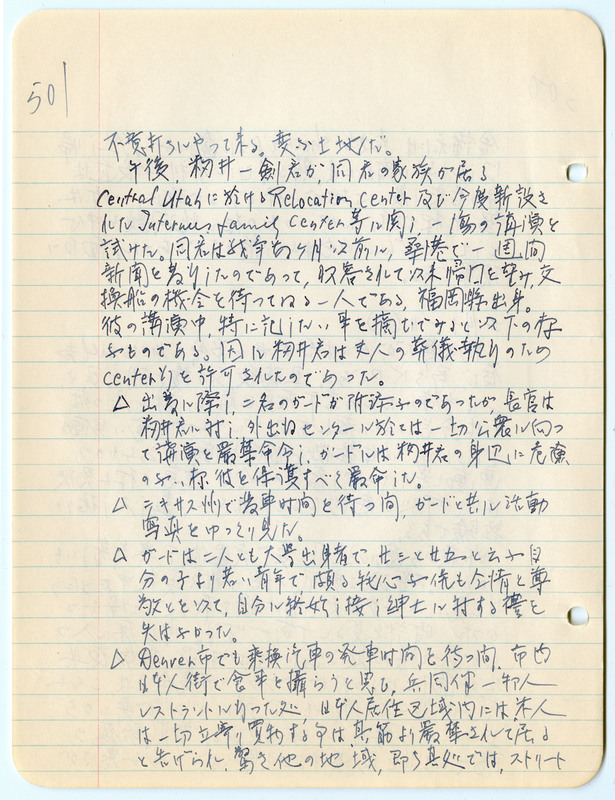 501
不意打ちにやって来る。変な土地だ。
午後 籾井一剣君が、同君の家族が居る
Central Utahに於けるRelocation Center及び今度新設さ
れた Internus family Center等に関し、一場の講演を
試みた。同君は戦争 ヶ月以前に、桑港で一週間
新聞を やりいたのであって、収容されて以来帰国を望み、交
換船の機会を待ってゐる一人である、福岡県出身。
彼の講演中、特に記したい事を摘むでみると以下の様
なものである。因に籾井君は夫人の葬儀執りのため
center行を許可されたのであった。
△ 出発に際し、二名のガードが附添ふのであったが、長官は
籾井君に対し、外出ねセンターに於ては一切公衆に向っ
て講演を厳禁命令し、ガードには籾井君の身辺に危険
のない様、彼を保護すべく厳命した。
△ テキサス州で発車時间を待つ間、ガードと共に活動
寫真をゆっくり見た。
△ ガードは二人とも大学出身者で、廿三と廿五と云ふ自
分の子より若い青年で、頗る 同情と尊
敬とを以て、自分に終始し接し紳士に対する禮を
失はなかった。
△ Denver市でも乗換汽車の発車时间を待つ间、市内
日本人街で食事を攝らうと思ひ、兵同伴一邦人
レストラントに行った処、日本人居住区域内には本人
は一切立寄り買物する事は其筋より厳禁されて居る
と告げられ、驚き他の地域、即ち其処では、ストリート